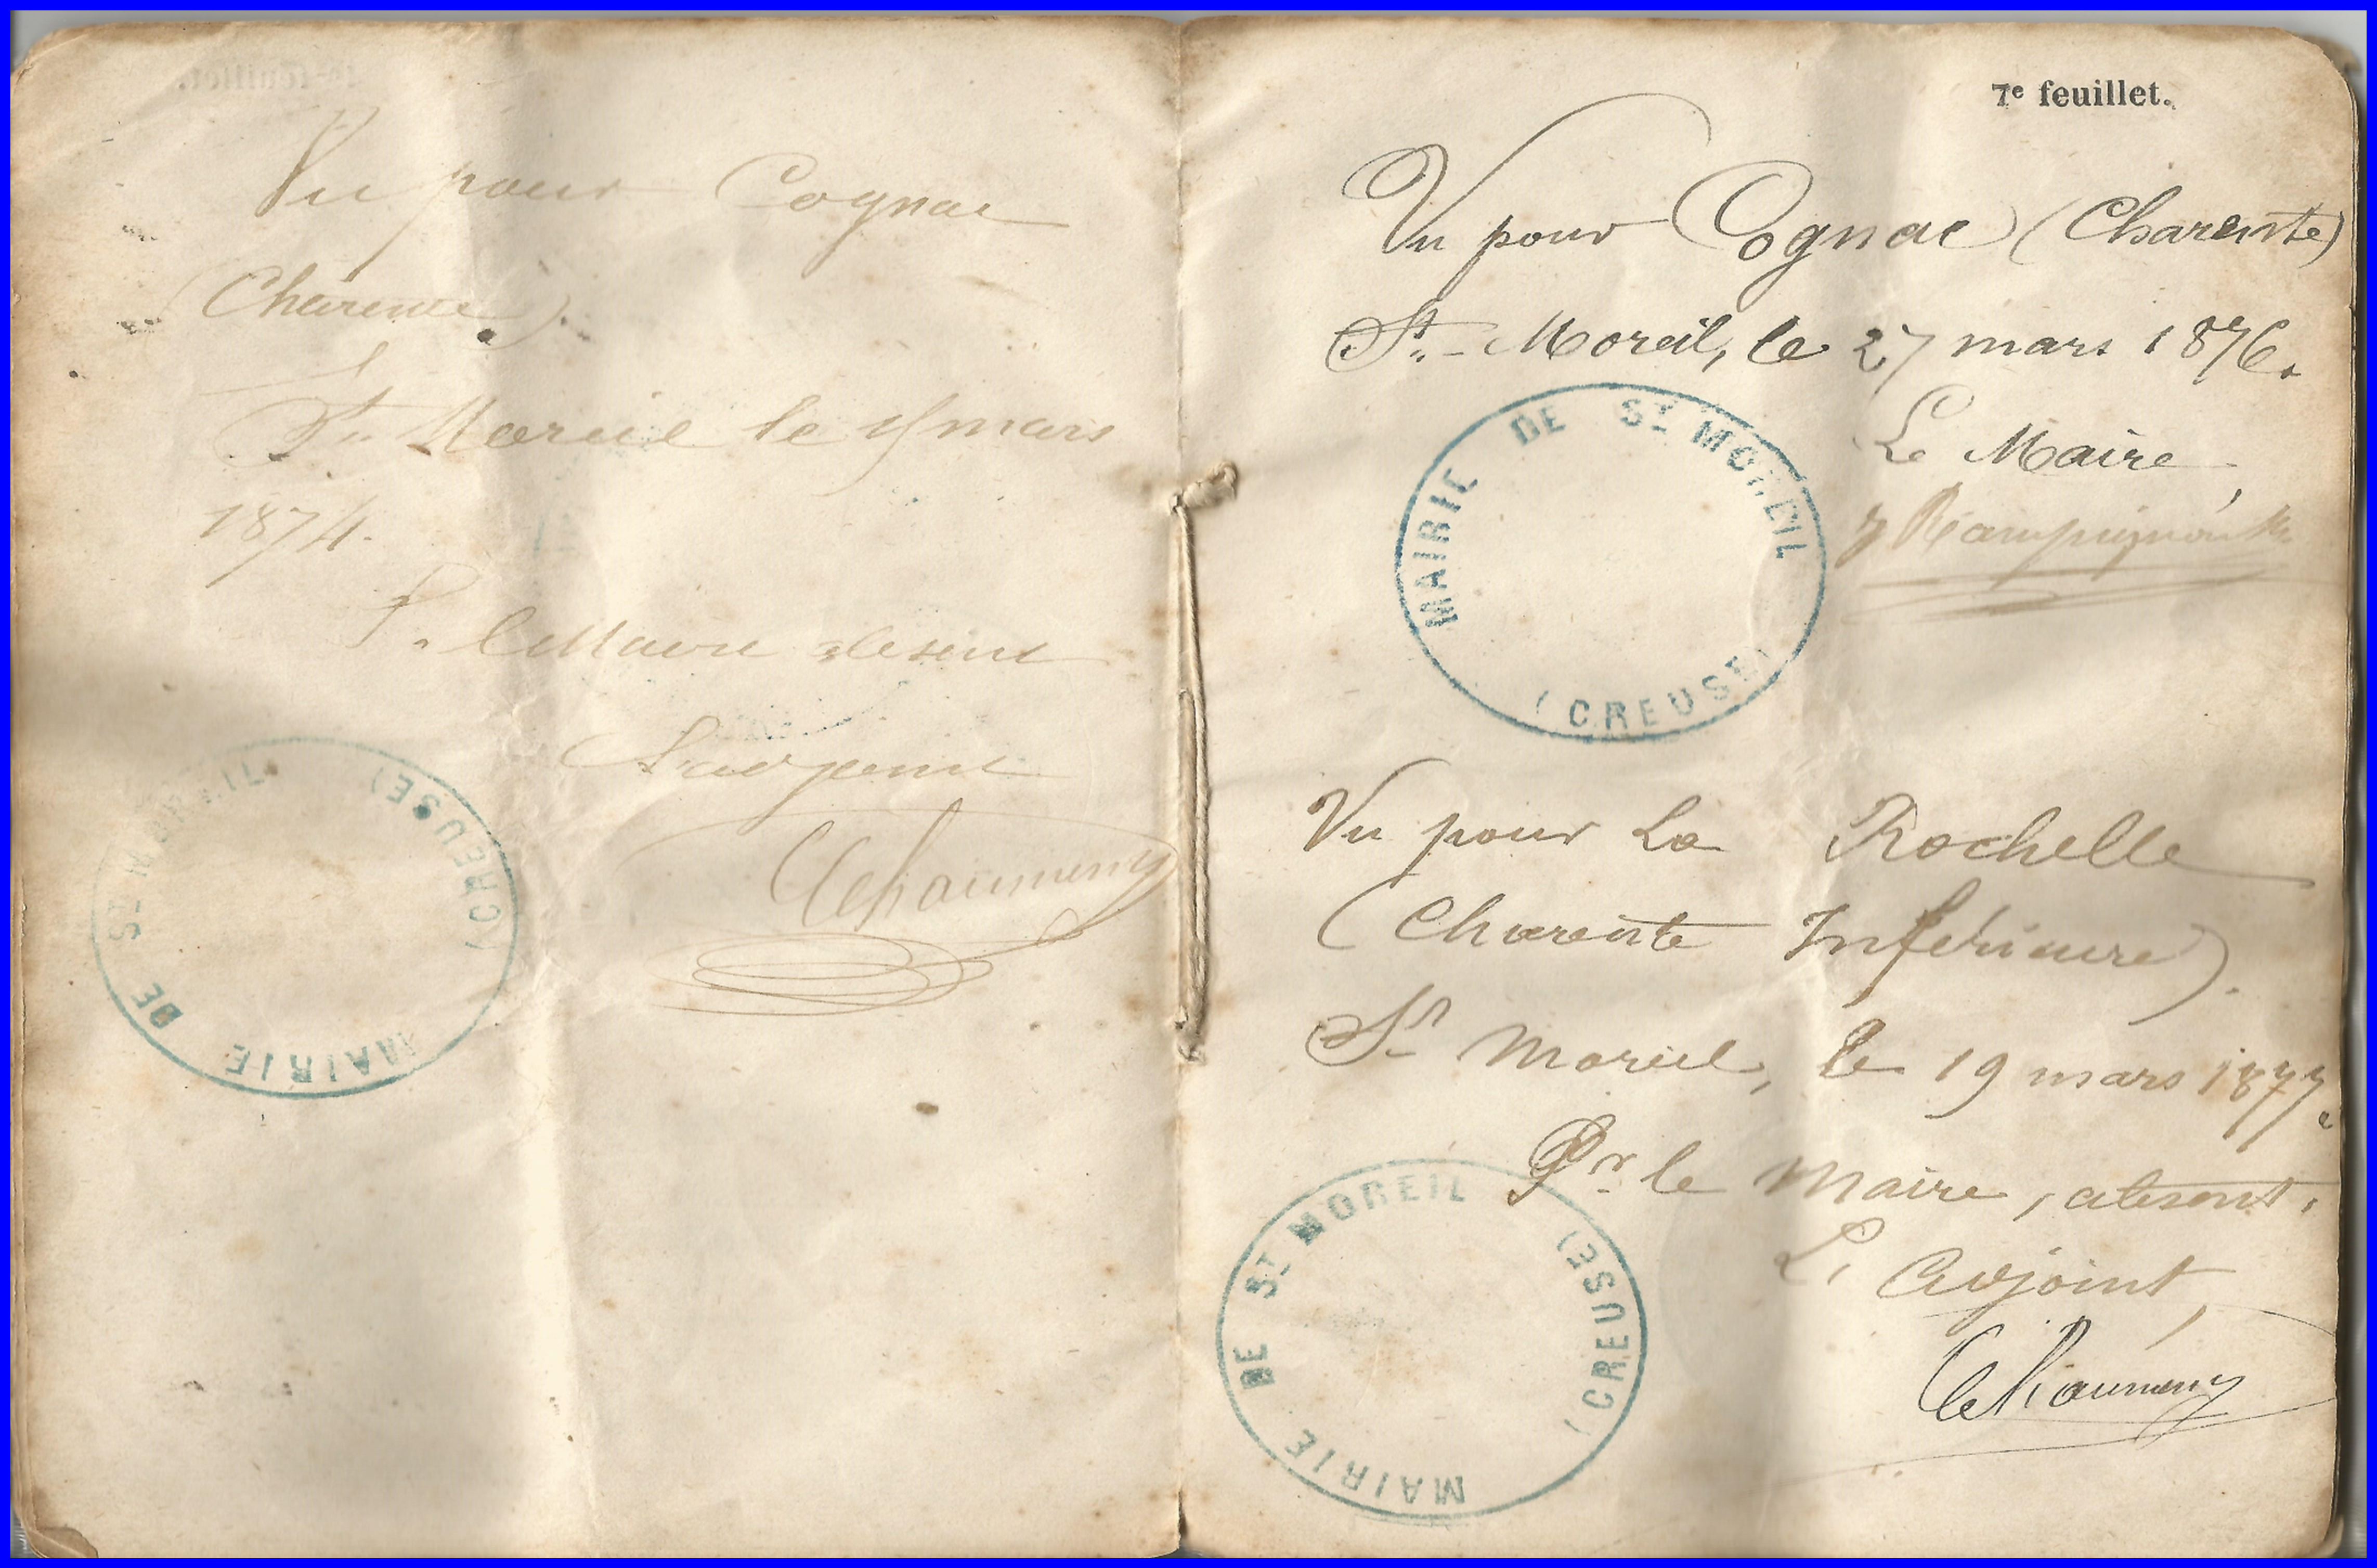 Vu pour Cognac
(Charente).
St Moreil le mars
1874.
P. le Maire absent
L'adjoint
MAIRIE DE ST MOREIL (CREUSE)
7e feuillet.
Vu pour Cognac (Charente)
St. - Moreil, le 27 mars 1876.
Le Maire,
MAIRIE DE ST MOREIL (CREUSE)
Vu pour La Rochelle
(Charente Inférieure).
St Moreil, le 19 mars 1877.
Pr. le Maire, absent,
L'Adjoint,
MAIRIE DE ST MOREIL (CREUSE)